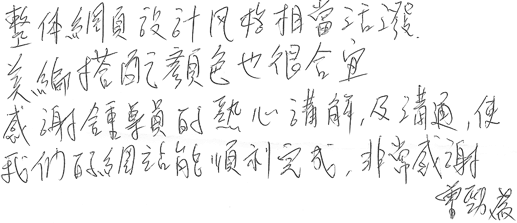 整体網頁設計风格相當活潑.
美編搭配顏色也很合宜
感謝鍾專員的熱心講解,及溝通,使
我們的網站能順利完成,非常感謝
曾